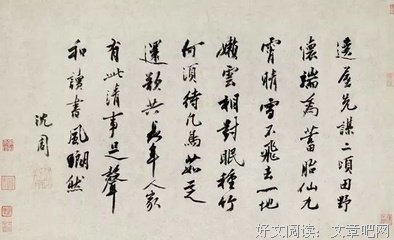 遶屋先謀二頃田野
懷端為蓄胎仙九
霄晴雪不飛去一地
嫩雲相對眠種竹
何須待凡馬茹芝
還欲共長年人家
有此清事足聲
和讀書風然
沈周
好文阅读：文章吧网